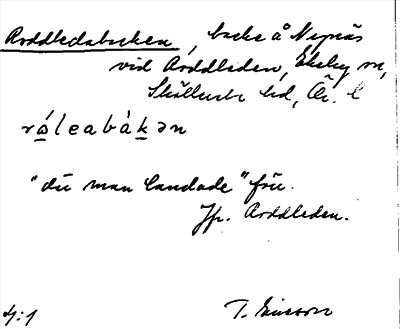 Roddledabacken, backe å Nynäs
vid Roddleden, Ekeby sn,
Sköllersta hd, Ör. l
rá̱leabàḵən
"dit man landade" förr.
Jfr. Roddleden.
4:1 T. Ericsson